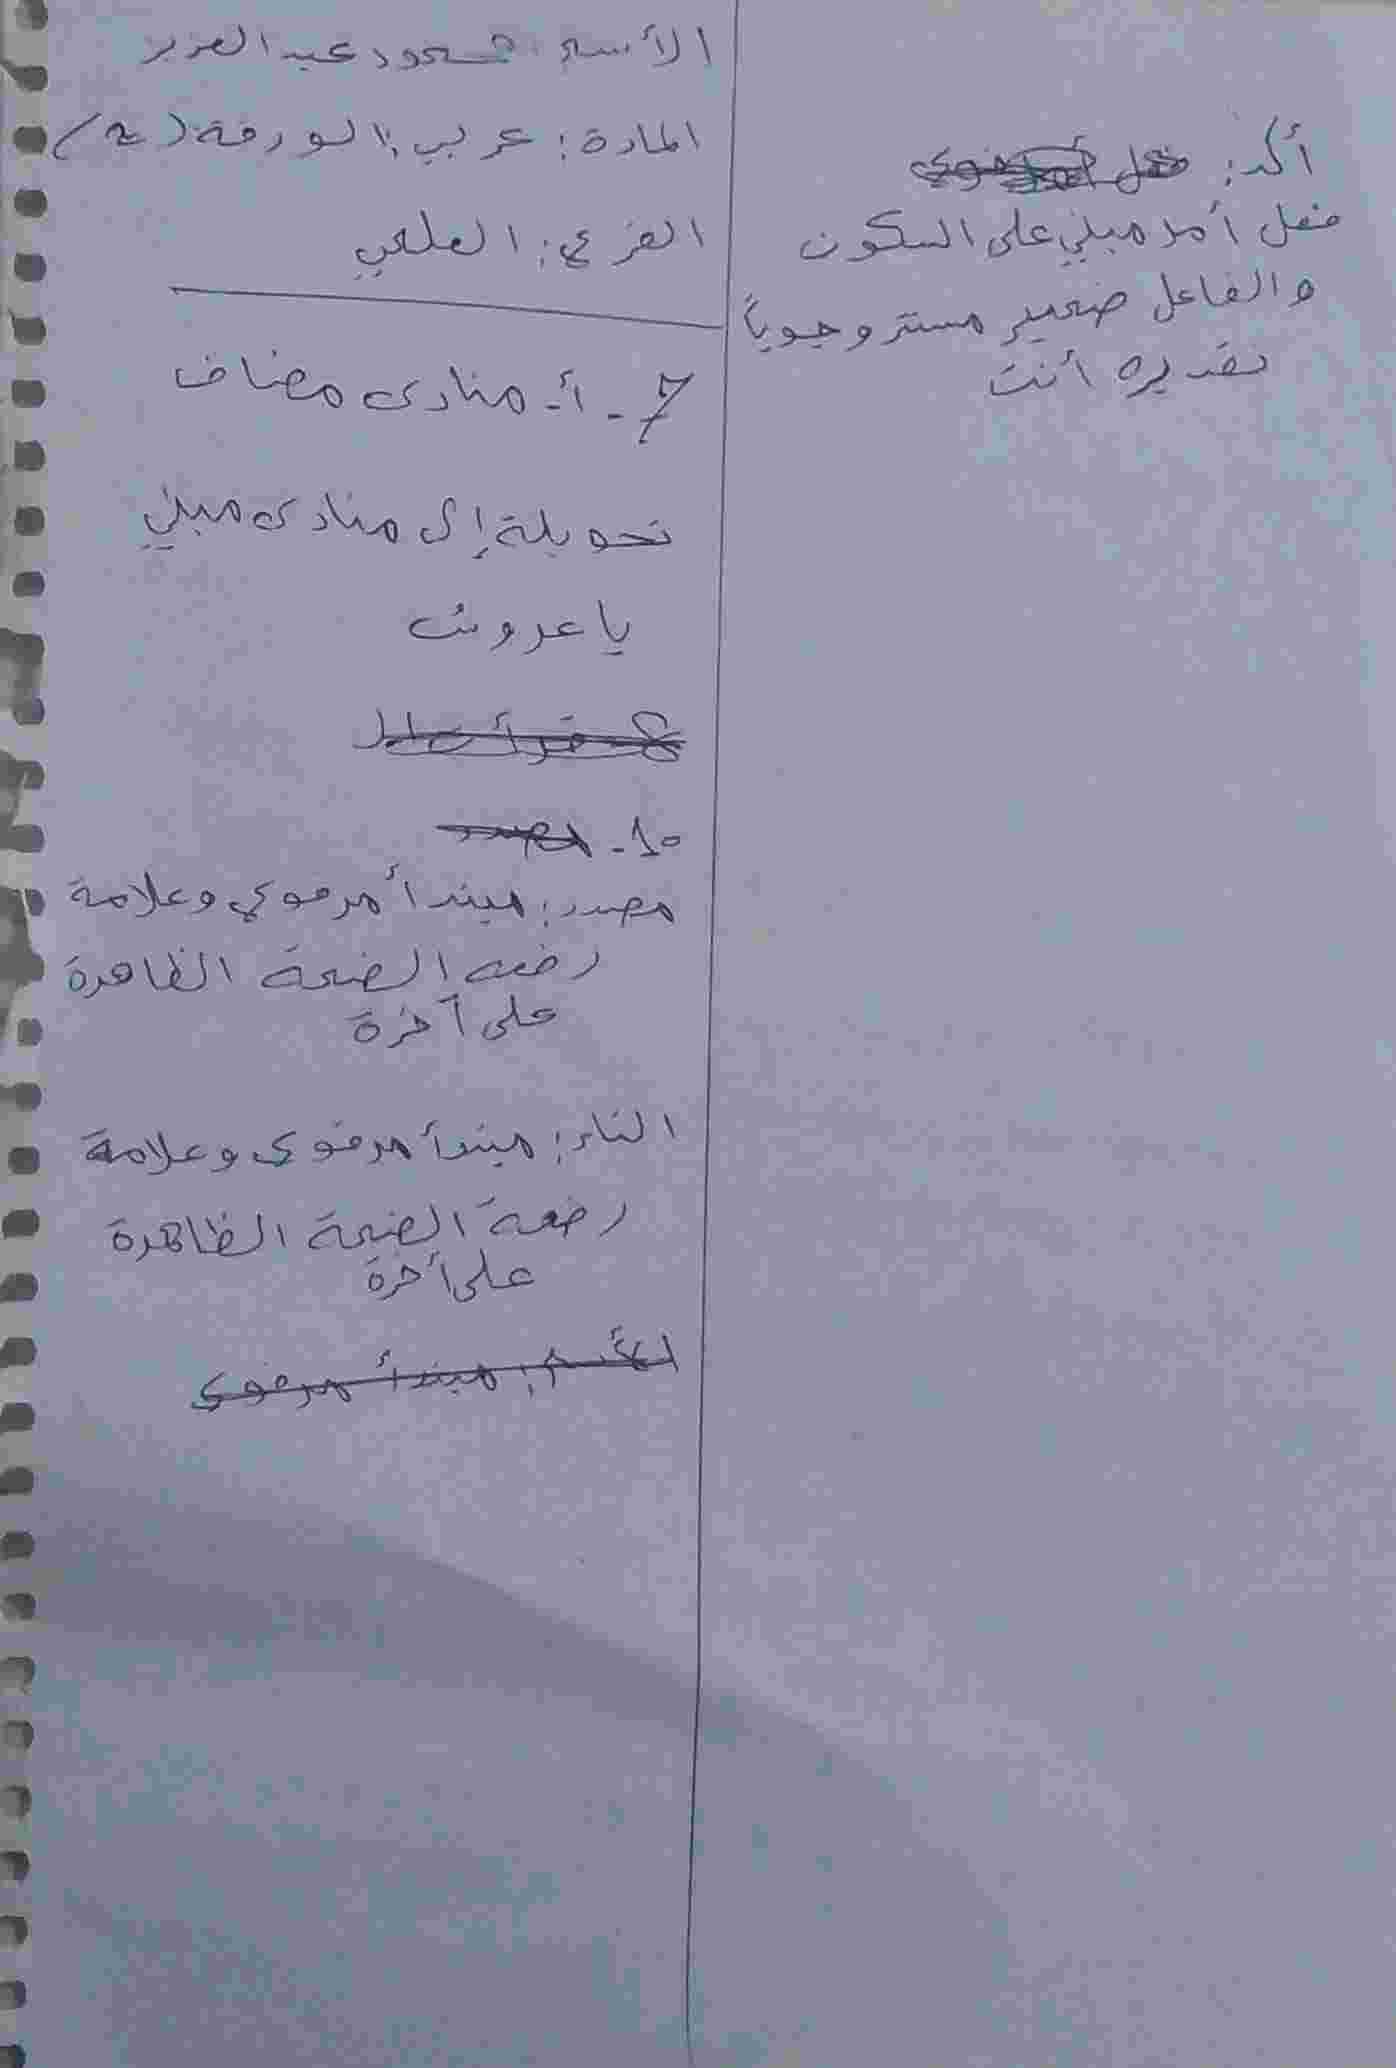 الأسم: محمود عبد العزيز
المادة: عربي: الورقة (2)
الفرع: العلمي
7- أ- منادى مضاف
تحويلة إلى منادى مبني
يا عروسُ
10-
مصدر: مبتدأ مرفوع وعلامة
رفعه الضمة الظاهرة
على آخرة
الناس: مبتدأ مرفوع وعلامة
رفعة الضمة الظاهرة
على أخرة
الأسم: مبتدأ مرفوع
أكد:
فعل أمر مبني على السكون
والفاعل ضمير مستتر وجوباً
تقديره أنت